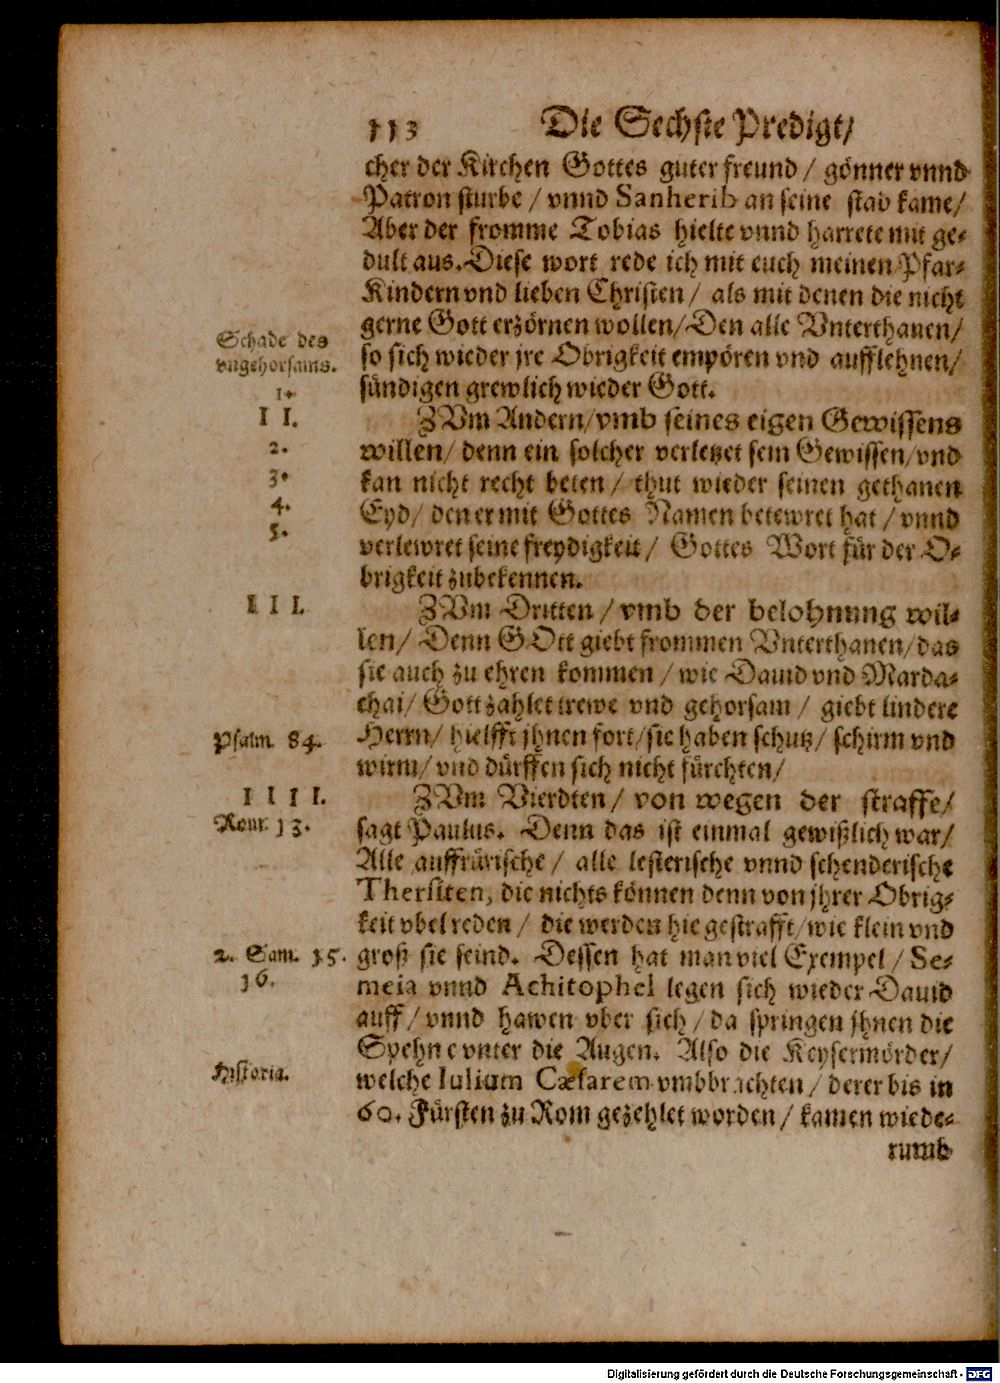 113 Die Sechste Predigt/
cher der Kirchen Gottes guter freund / gönner vnnd
Patron sturbe / vnnd Sanherib an seine stad kame/
Aber der fromme Tobias hielte vnnd harrete mit ge-
dult aus. Diese wort rede ich mit euch meinen Pfar-
Kindern vnd lieben Christen / als mit denen die nicht
gerne Gott erzörnen wollen/ Den alle Vnterthanen/
Schade des
vngehorsams.
1.
so sich wieder jre Obrigkeit empören vnd aufflehnen/
sündigen grewlich wieder Gott.
II.
ZVm Andern/ vmb seines eigen Gewissens
2.
willen/ denn ein solcher verletzet sein Gewissen/ vnd
3.
kan nicht recht beten / thut wieder seinen gethanen
4.
Eyd/ den er mit Gottes Namen betewret hat / vnnd
5.
verlewret seine freydigkeit / Gottes Wort für der O-
brigkeit zubekennen.
III.
ZVm Dritten / vmb der belohnung wil-
len/ Denn GOtt giebt frommen Vnterthanen/ das
sie auch zu ehren kommen / wie Dauid vnd Marda-
chai/ Gott zahlet trewe vnd gehorsam / giebt lindere
Psalm. 84.
Herrn/ hielfft jhnen fort/ sie haben schutz/ schirm vnd
wirm/ vnd dürffen sich nicht fürchten/
IIII.
ZVm Vierdten / von wegen der straffe/
Rom. 13.
sagt Paulus. Denn das ist einmal gewißlich war/
Alle auffrürische / alle lesterische vnnd schenderische
Thersiten, die nichts können denn von jhrer Obrig-
keit vbel reden / die werden hie gestrafft/ wie klein vnd
2. Sam. 15.
16.
groß sie seind. Dessen hat man viel Exempel / Se-
meia vnnd Achitophel legen sich wieder Dauid
auff / vnnd hawen vber sich / da springen jhnen die
Spehne vnter die Augen. Also die Keysermörder/
Historia.
welche Iulium Cæsarem vmbbrachten / derer bis in
60. Fürsten zu Rom gezehlet worden / kamen wiede-
rumb
Digitalisierung gefördert durch die Deutsche Forschungsgemeinschaft - DFG